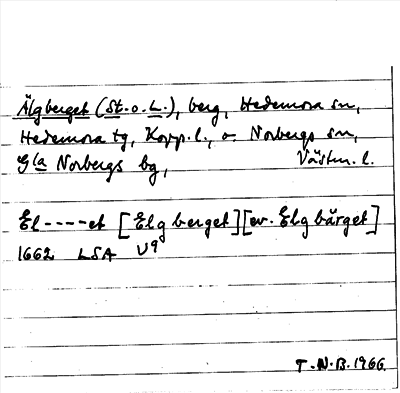 Älgberget (St. o. L.), berg, Hedemora sn,
Hedemora tg, Kopp. l., o. Norbergs sn,
Gla Norbergs bg, Västm. l.
El----et [Elg berget] [ev. Elg bärget]
1662 LSA U9
T.N.B. 1966